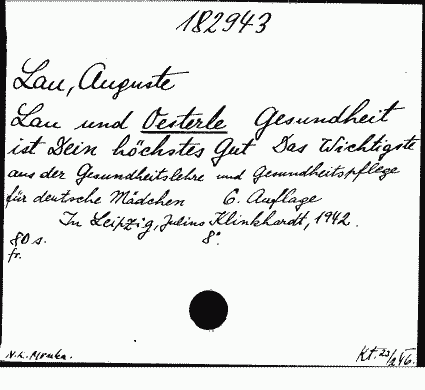 182943
Lau, Auguste
Lau und Oesterle Gesundheit
ist Dein höchstes Gut Das Wichtigste
aus der Gesundheitslehre und Gesundheitspflege
für deutsche Mädchen 6. Auflage
In Leipzig, Julius Klinkhardt, 1942.
80 s. 8°.
fr.
Kt. 23/2 46.